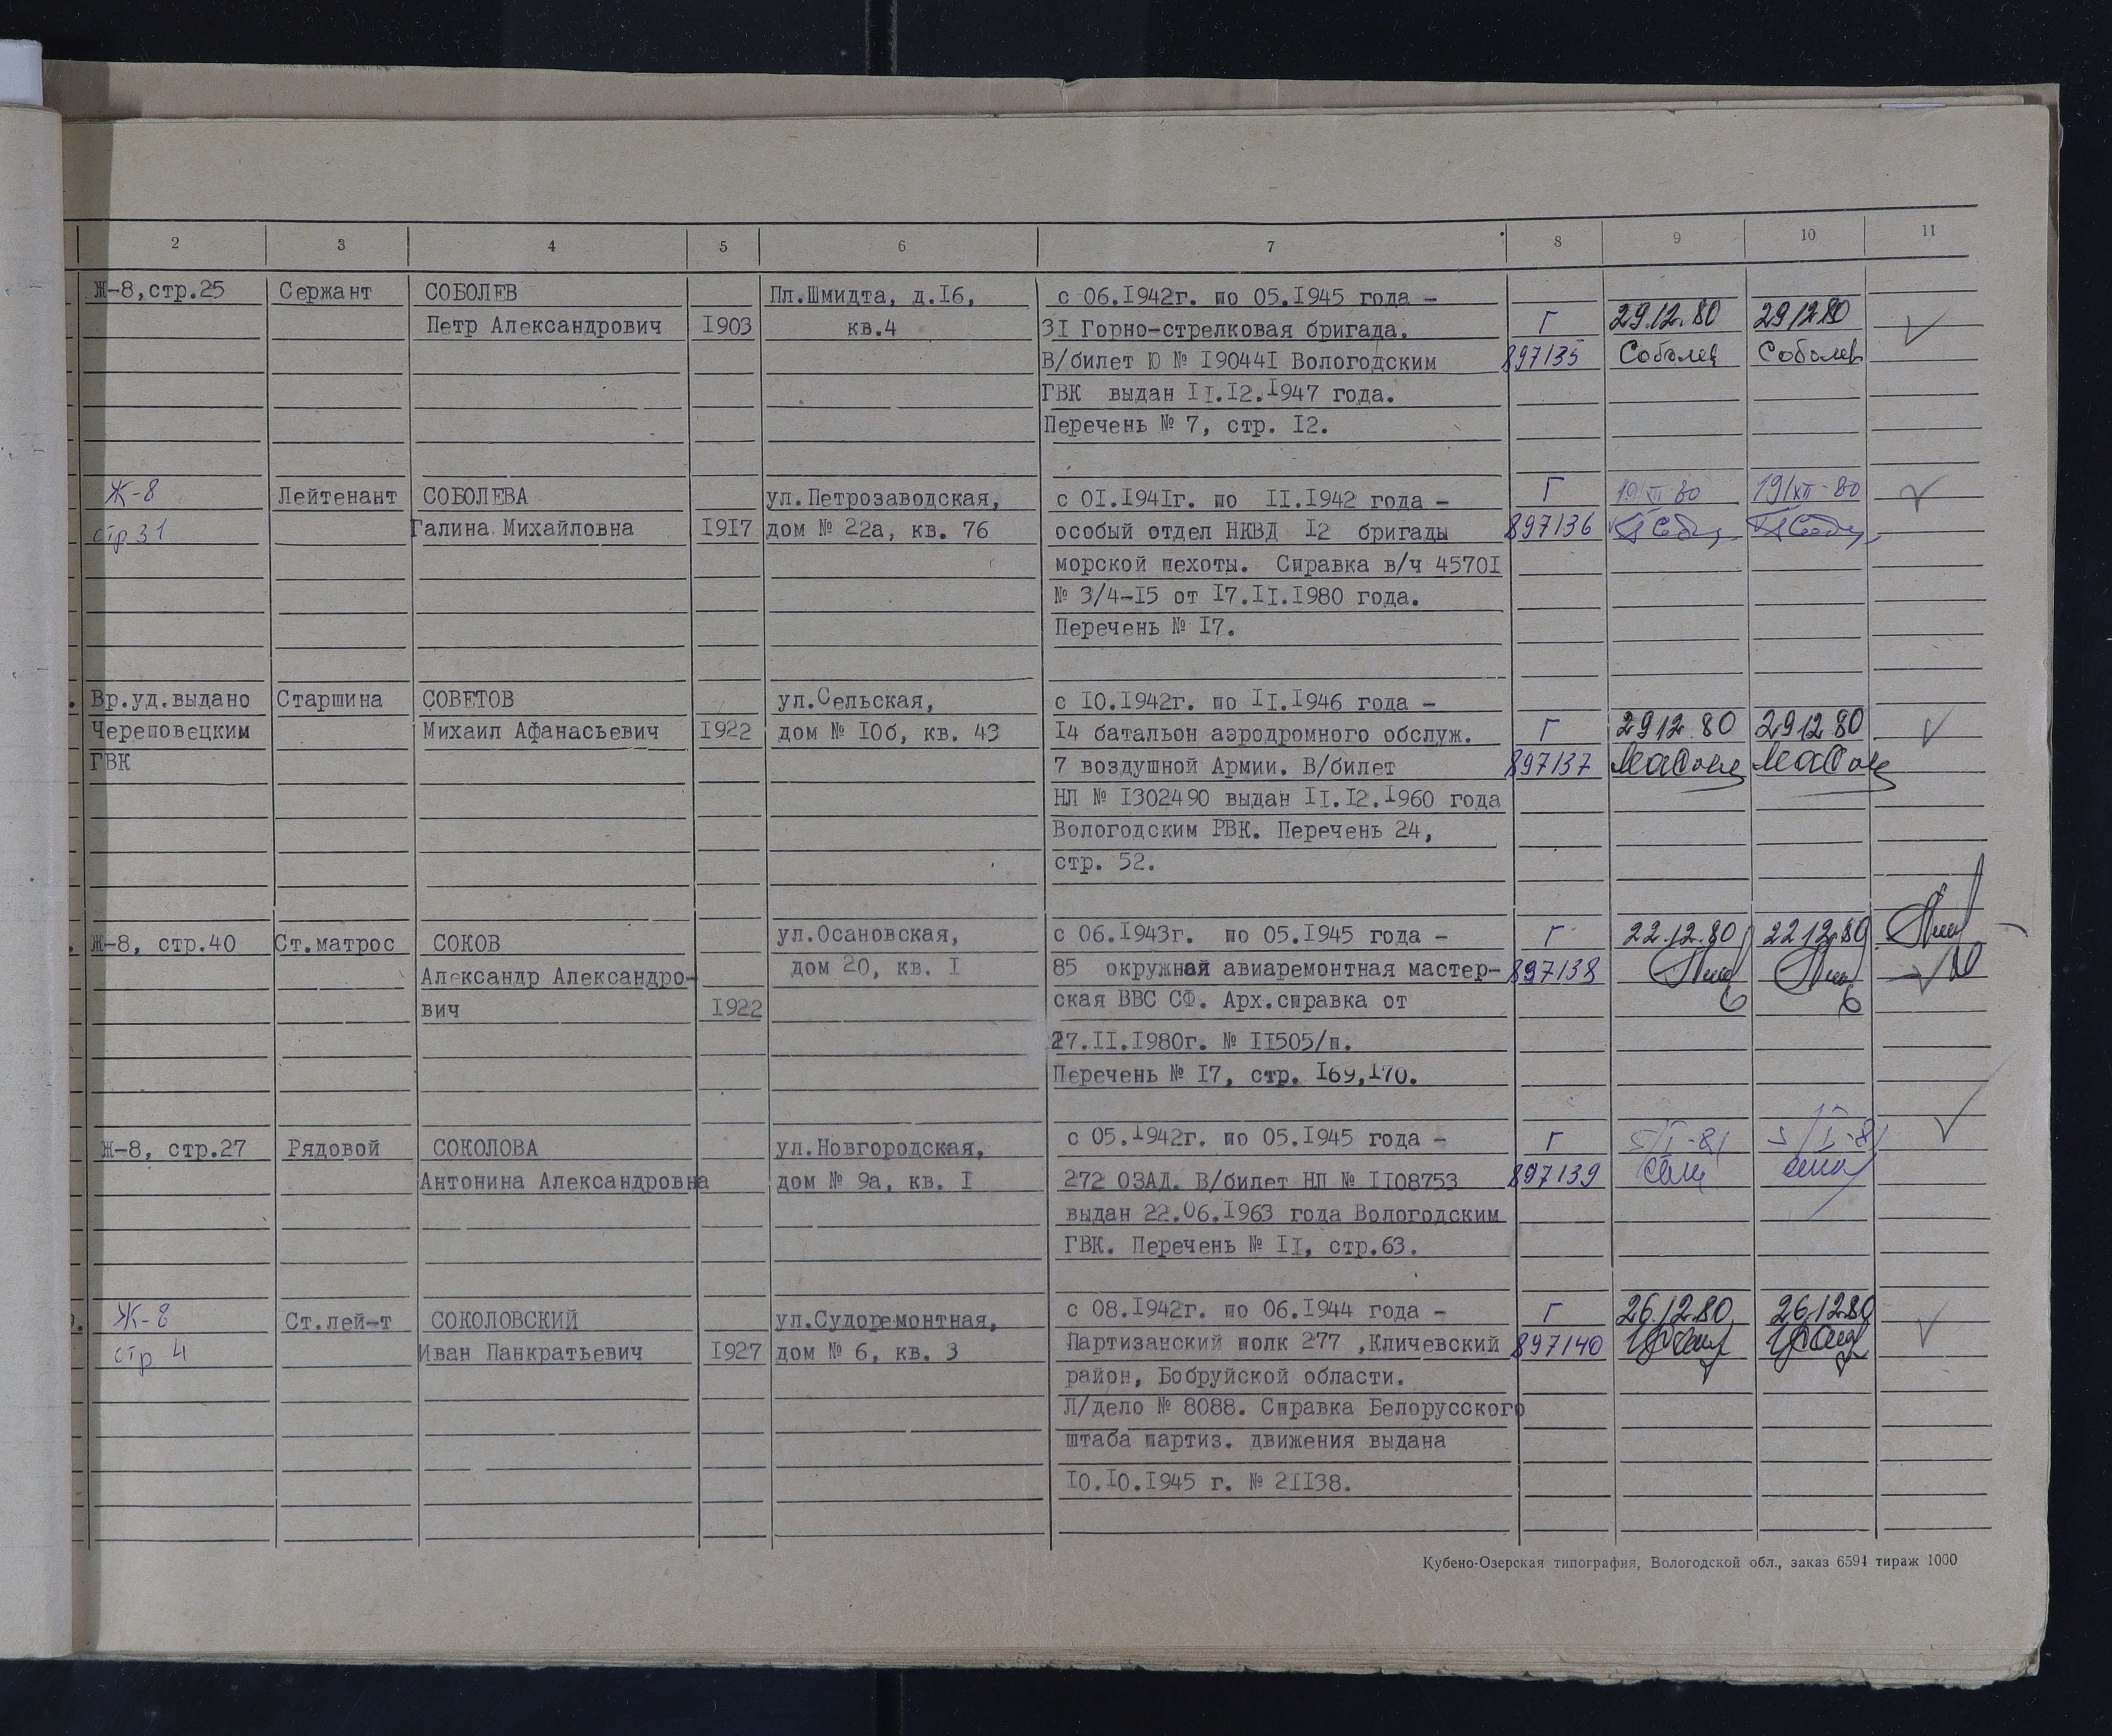 2 3 4 5 6 7 8 9 10 11
Ж-8,стр.25 Сержант СОБОЛЕВ Пл.Шмидта, д.16, с 06.1942г. по 05.1945 года -
Петр Александрович 1903 кв.4 31 Горно-стрелковая бригада. Г 29.12.80 29.12.80
В/билет Ю № 190441 Вологодским 897135 Соболев Соболев
ГВК выдан 11.12.1947 года.
Перечень № 7, стр. 12.
Ж-8 Лейтенант СОБОЛЕВА ул.Петрозаводская, с 01.1941г. по 11.1942 года - Г 19/XII 80 19/XII-80
стр 31 Галина Михайловна 1917 дом № 22а, кв. 76 особый отдел НКВД 12 бригады 897136
морской пехоты. Справка в/ч 45701
№ 3/4-15 от 17.11.1980 года.
Перечень № 17.
Вр.уд.выдано Старшина СОВЕТОВ ул.Сельская, с 10.1942г. по 11.1946 года -
Череповецким Михаил Афанасьевич 1922 дом № 10б, кв. 43 14 батальон аэродромного обслуж. Г 29 12 80 29 12 80
ГВК 7 воздушной Армии. В/билет 897137
НЛ № 1302490 выдан 11.12.1960 года
Вологодским РВК. Перечень 24,
стр. 52.
Ж-8, стр.40 Ст.матрос СОКОВ ул.Осановская, с 06.1943г. по 05.1945 года - Г 22.12.80 22 12.80
Александр Александро- дом 20, кв. 1 85 окружная авиаремонтная мастер- 897138
вич 1922 ская ВВС СФ. Арх.справка от
27.11.1980г. № 11505/п.
Перечень № 17, стр. 169,170.
Ж-8, стр.27 Рядовой СОКОЛОВА ул.Новгородская, с 05.1942г. по 05.1945 года - Г 5/I-81 5/I-81
Антонина Александровна дом № 9а, кв. 1 272 ОЗАД. В/билет НЛ № 1108753 897139
выдан 22.06.1963 года Вологодским
ГВК. Перечень № 11, стр.63.
Ж-8 Ст.лей-т СОКОЛОВСКИЙ ул.Судоремонтная, с 08.1942г. по 06.1944 года - Г 26.12.80 26.12.80
стр 4 Иван Панкратьевич 1927 дом № 6, кв. 3 Партизанский полк 277 ,Кличевский 897140
район, Бобруйской области.
Л/дело № 8088. Справка Белорусского
штаба партиз. движения выдана
10.10.1945 г. № 21138.
Кубено-Озерская типография, Вологодской обл., заказ 6594 тираж 1000